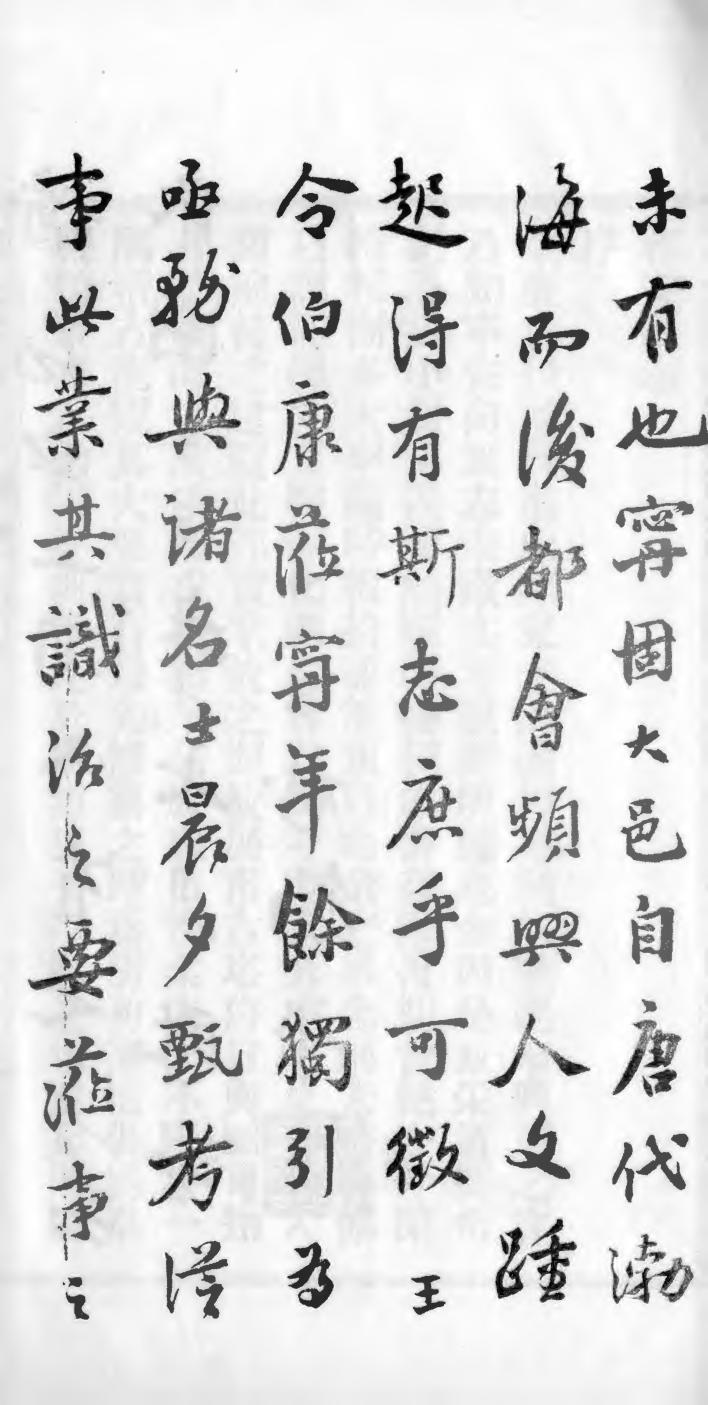 未有也寗固大邑自唐代渤
海而後都會頻興人文踵
起得有斯志庶乎可徵王
令伯康蒞寗年餘獨引為
亟務與諸名士晨夕甄考從
事此業其識治之要蒞事之